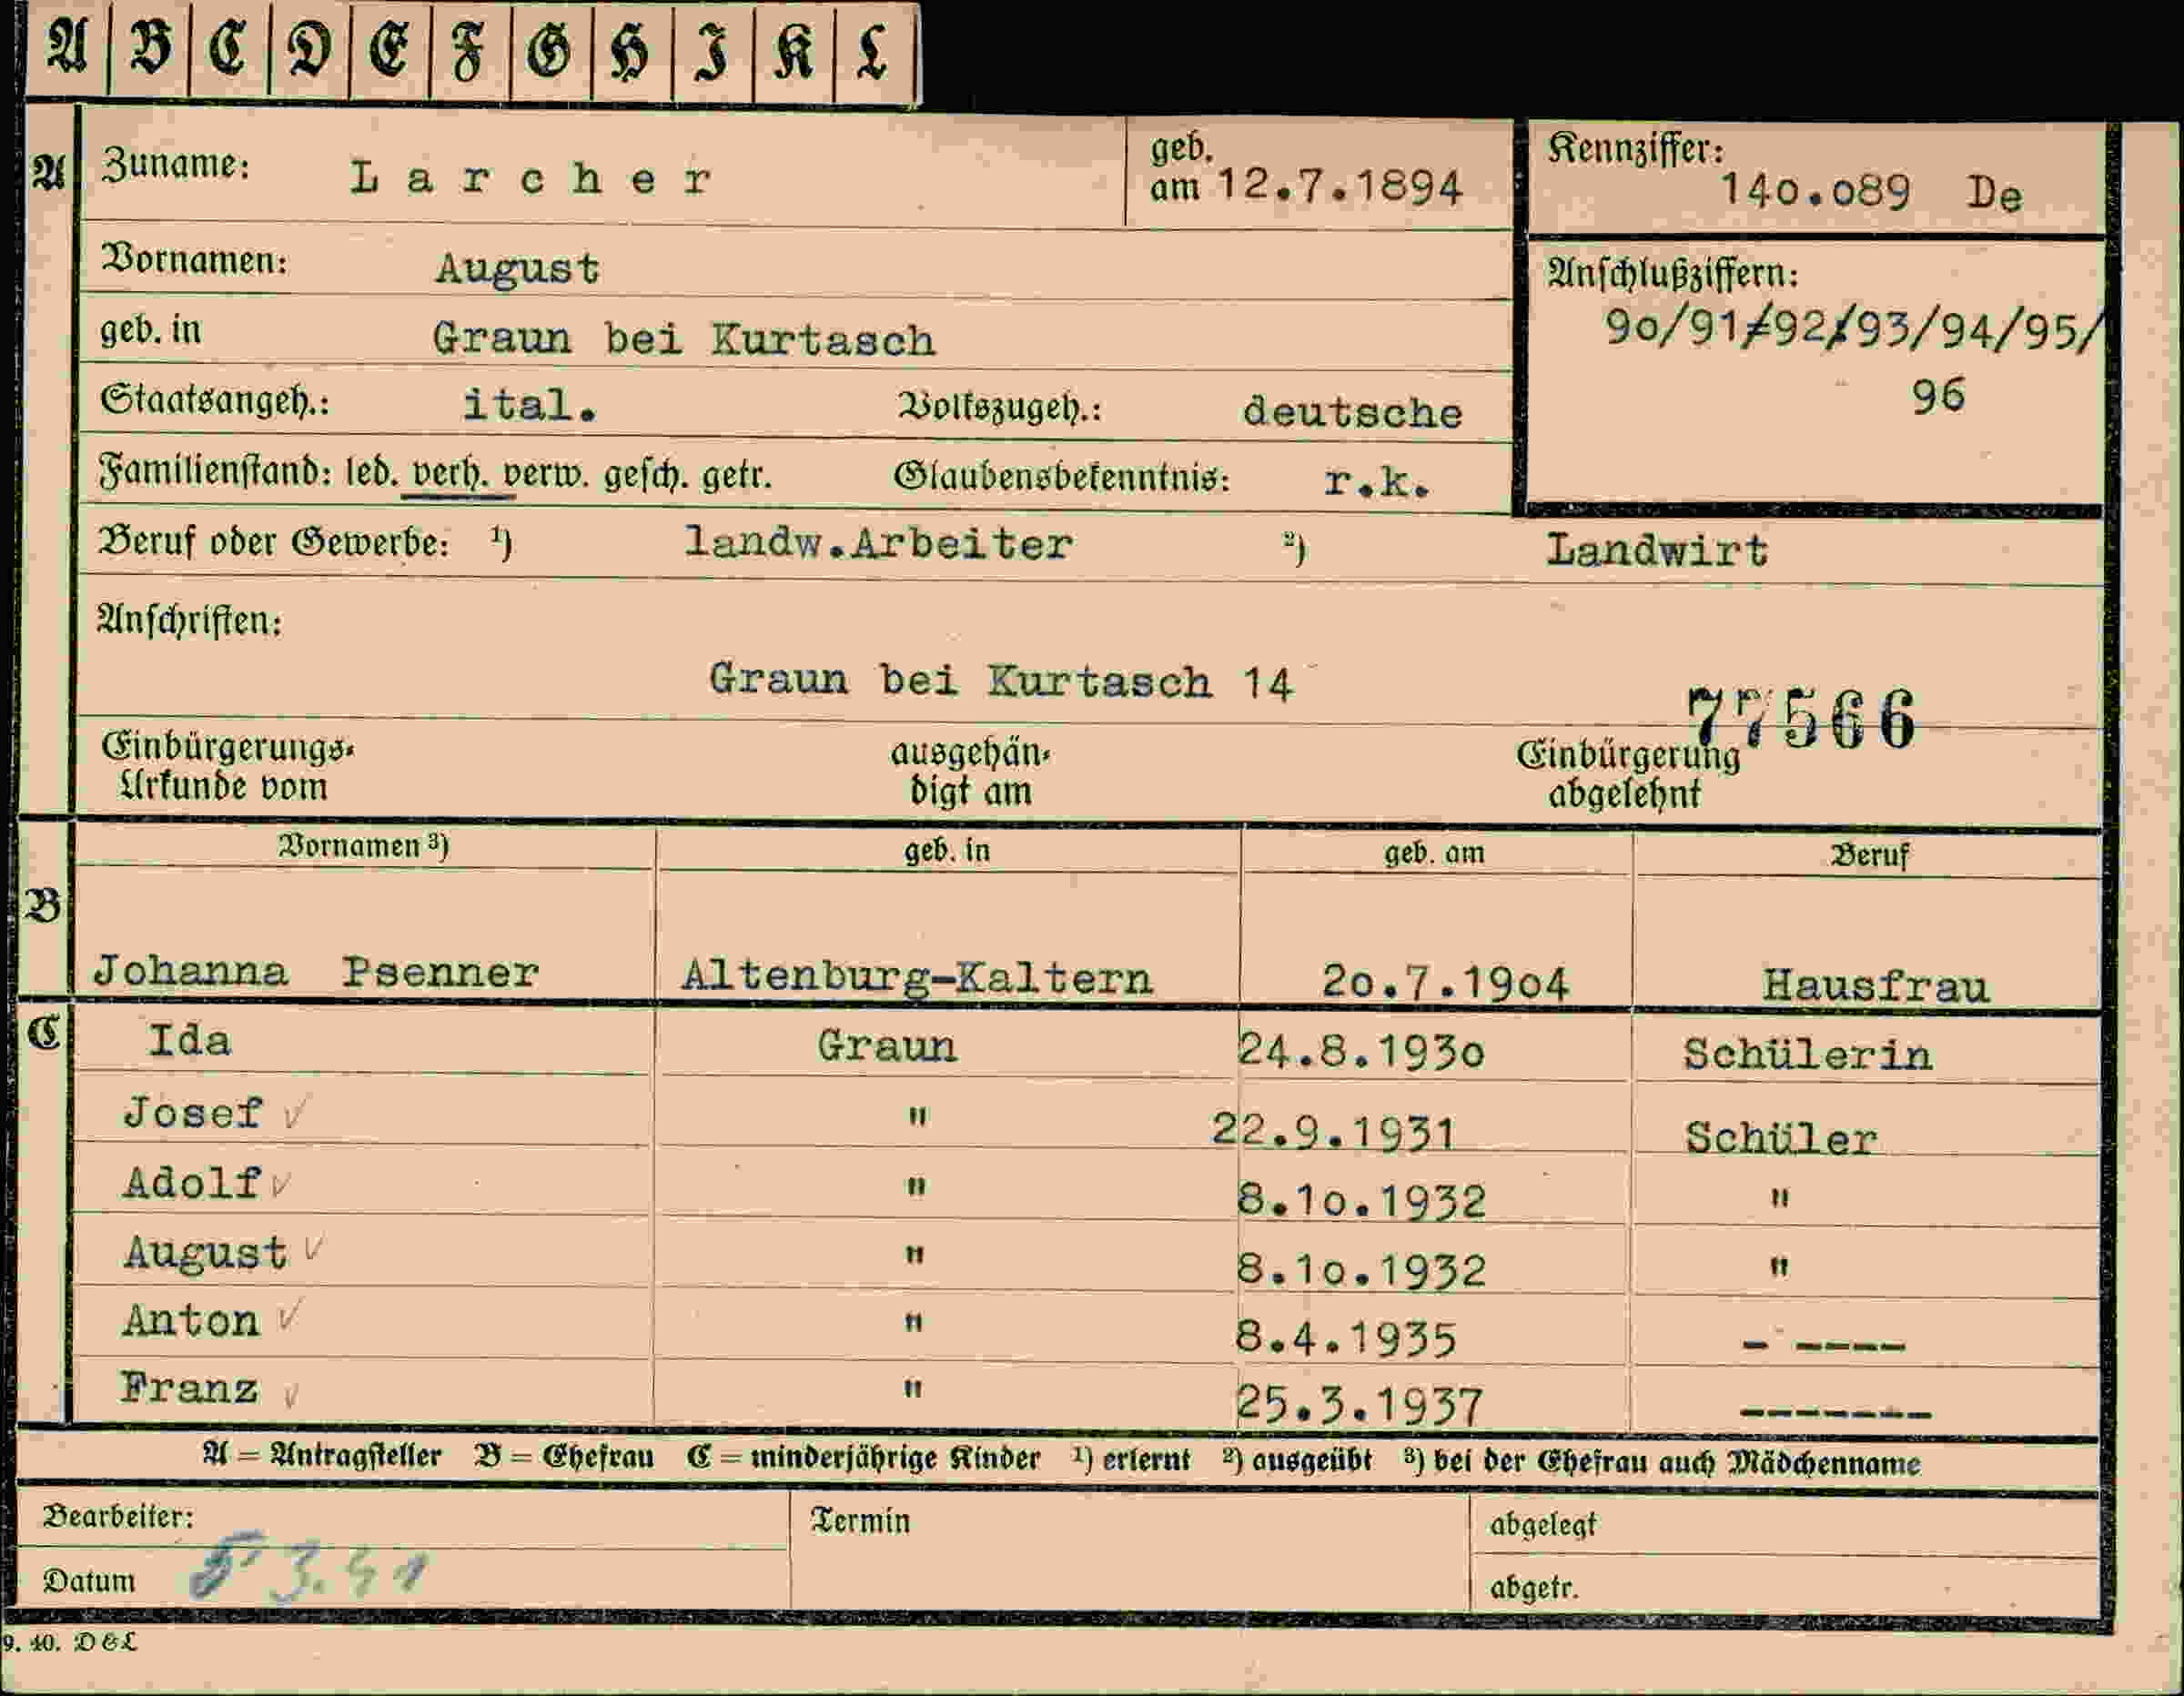 A B C D E F G H I K L
A Zuname: Larcher geb. am 12.7.1894 Kennziffer: 140.089 De
Vornamen: August
Anschlußziffern:
geb. in Graun bei Kurtasch 90/91/92/93/94/95/
96
Staatsangeh.: ital. Volkszugeh.: deutsche
Familienstand: led. verh. verw. gesch. getr. Glaubensbekenntnis: r.k.
Beruf oder Gewerbe: 1) landw.Arbeiter 2) Landwirt
Anschriften:
Graun bei Kurtasch 14
77566
Einbürgerungs- ausgehän- Einbürgerung
Urkunde vom digt am abgelehnt
B Vornamen 3) geb. in geb. am Beruf
Johanna Psenner Altenburg-Kaltern 20.7.1904 Hausfrau
C Ida Graun 24.8.1930 Schülerin
Josef ✓ " 22.9.1931 Schüler
Adolf ✓ " 8.10.1932 "
August ✓ " 8.10.1932 "
Anton ✓ " 8.4.1935 - ----
Franz ✓ " 25.3.1937 -------
A = Antragsteller B = Ehefrau C = minderjährige Kinder 1) erlernt 2) ausgeübt 3) bei der Ehefrau auch Mädchenname
Bearbeiter: Termin abgelegt
Datum 5 3. 41 abgetr.
9. 40. D & L